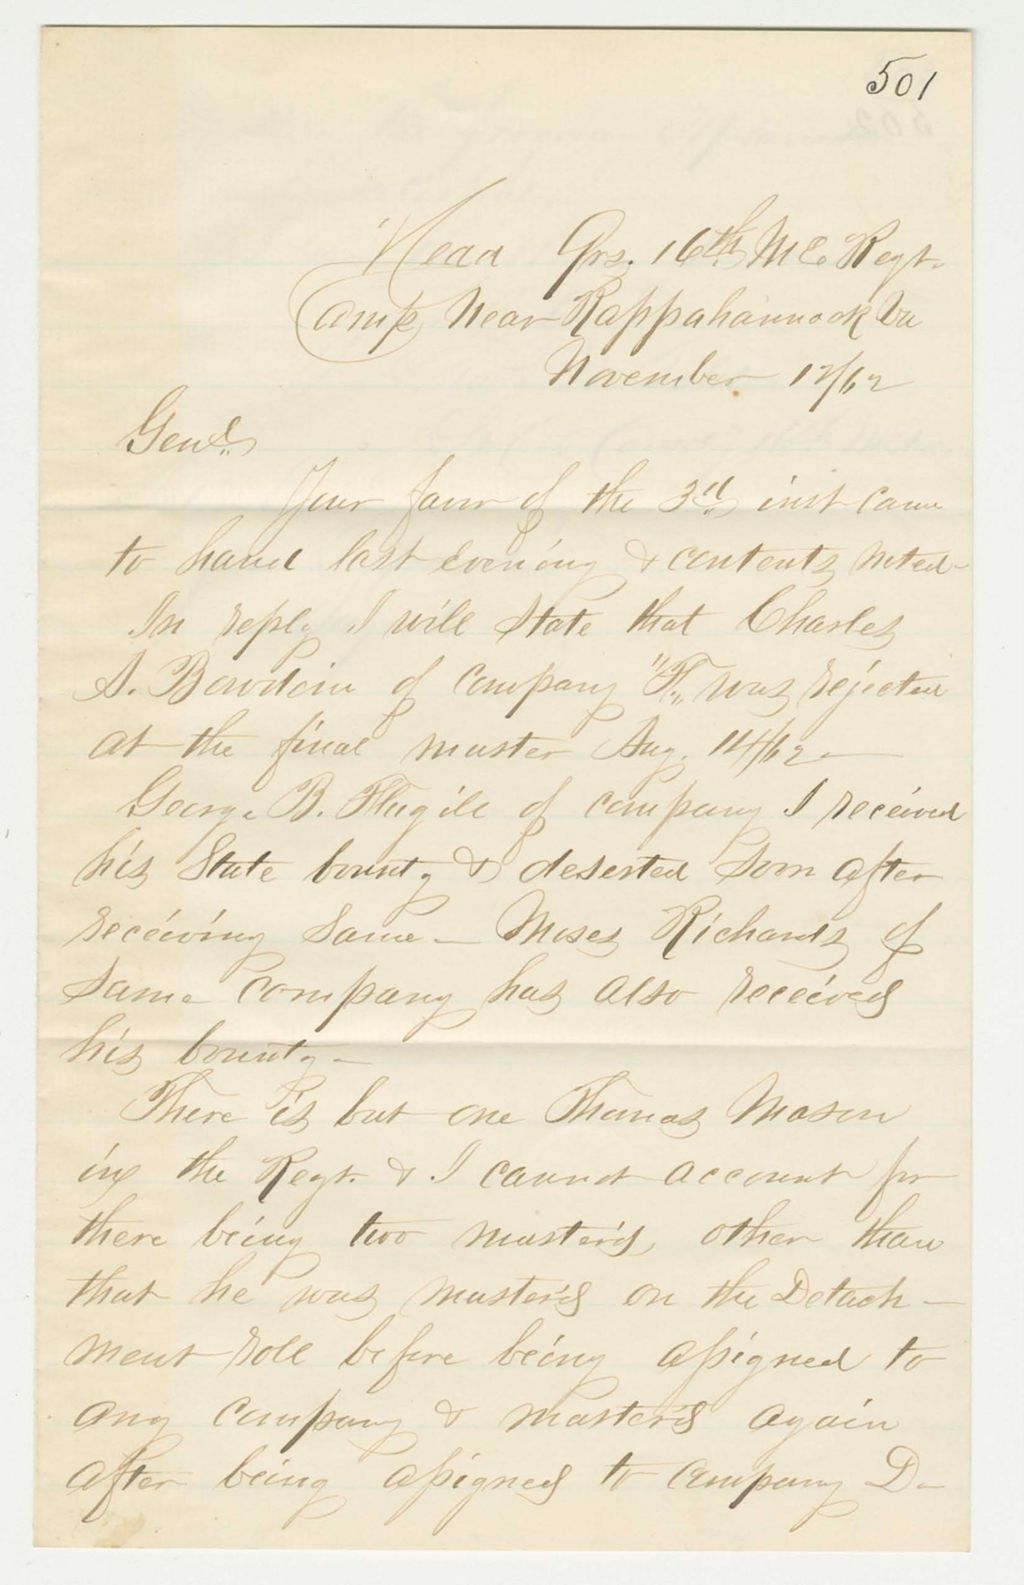 501
Head Qrs. 16th ME. Regt.
Camp Near Rappahannock Va
November 12/62
Genl.
Your favor of the 3rd inst came
to hand last evening & contents noted-
In reply I will State that Charles
A. Bowdoin of company "F" was rejected
at the final muster Aug. 14/62-
George B. of company I received
his State bounty & deserted soon after
receiving same- Moses Richards of
same company has also received
his bounty-
There is but one Thomas Mason
in the Regt. & I cannot account for
there being two muster'd, other than
that he was muster'd on the Detach-
ment roll before being assigned to
any company & muster'd again
after being assigned to company D-